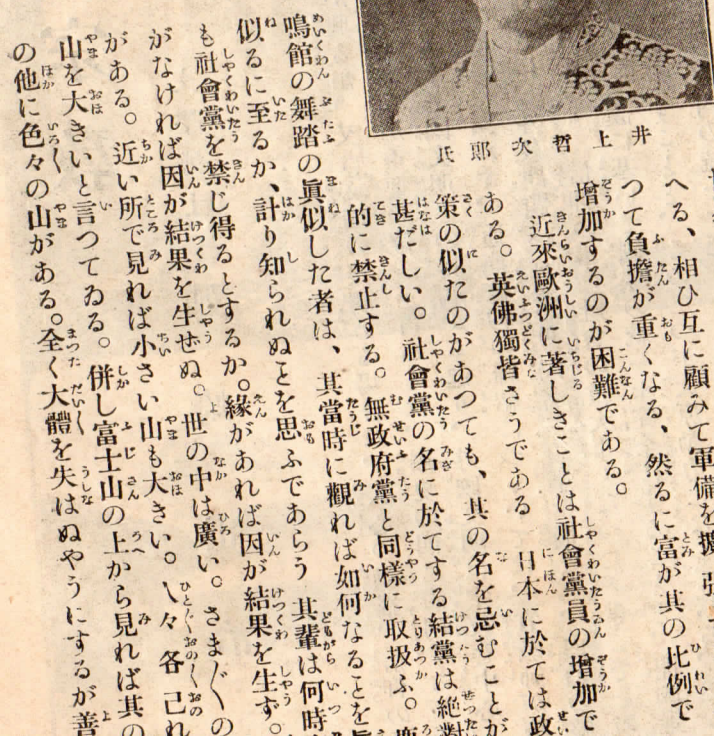 井上哲次郎氏
へる、相ひ互に顧みて軍備を擴張
つて負擔が重くなる、然るに富が其の比例で
增加するのが困難である。
近來歐洲に著しきことは社會黨員の增加で
ある。英佛獨皆さうである 日本に於ては政
策の似たのがあつても、其の名を忌むことが
甚だしい。社會黨の名に於てする結黨は絕對
的に禁止する。無政府黨と同樣に取扱ふ。
鳴館の舞踏の眞似した者は、其當時に觀れば如何なることを
似るに至るか、計り知られぬとを思ふであらう 其輩は何時
も社會黨を禁じ得るとするか。緣があれば因が結果を生ず。
がなければ因が結果を生せぬ。世の中は廣い。さまざまの
がある。近い所で見れば小さい山も大きい。人々各己れ
山を大きいと言つてゐる。併し富士山の上から見れば其の
の他に色々の山がある。全く大體を失はぬやうにするが善